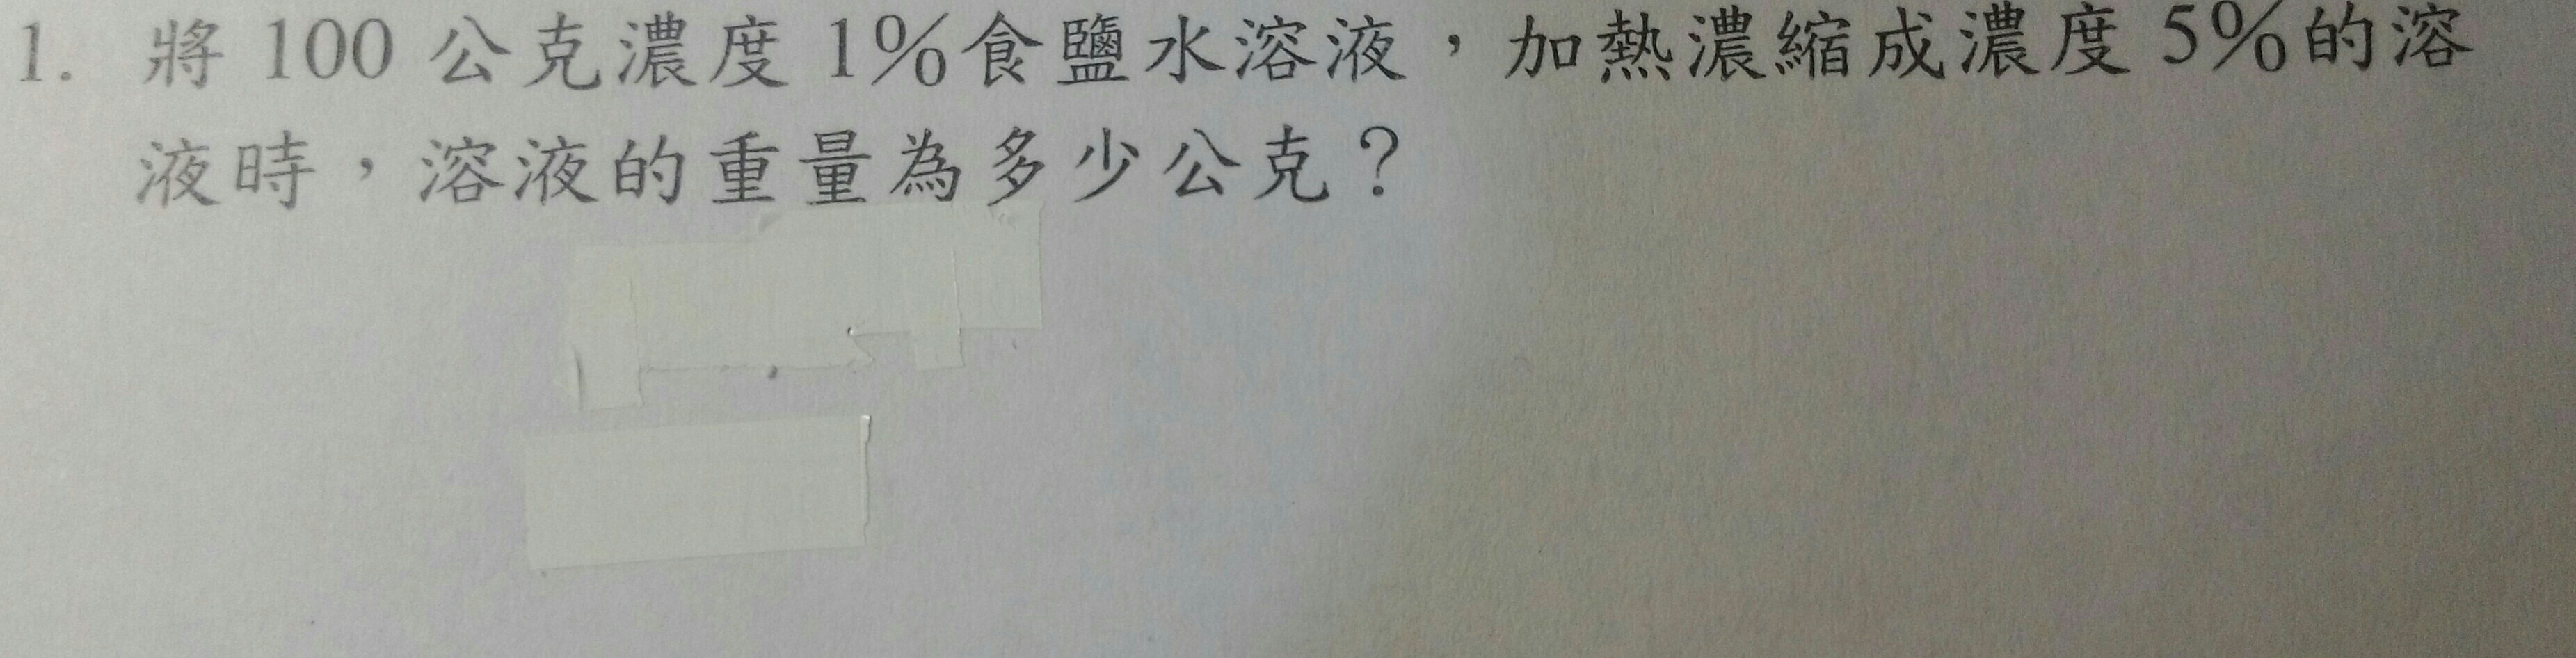 1. 將 100 公克濃度 1%食鹽水溶液，加熱濃縮成濃度 5%的溶
液時，溶液的重量為多少公克？